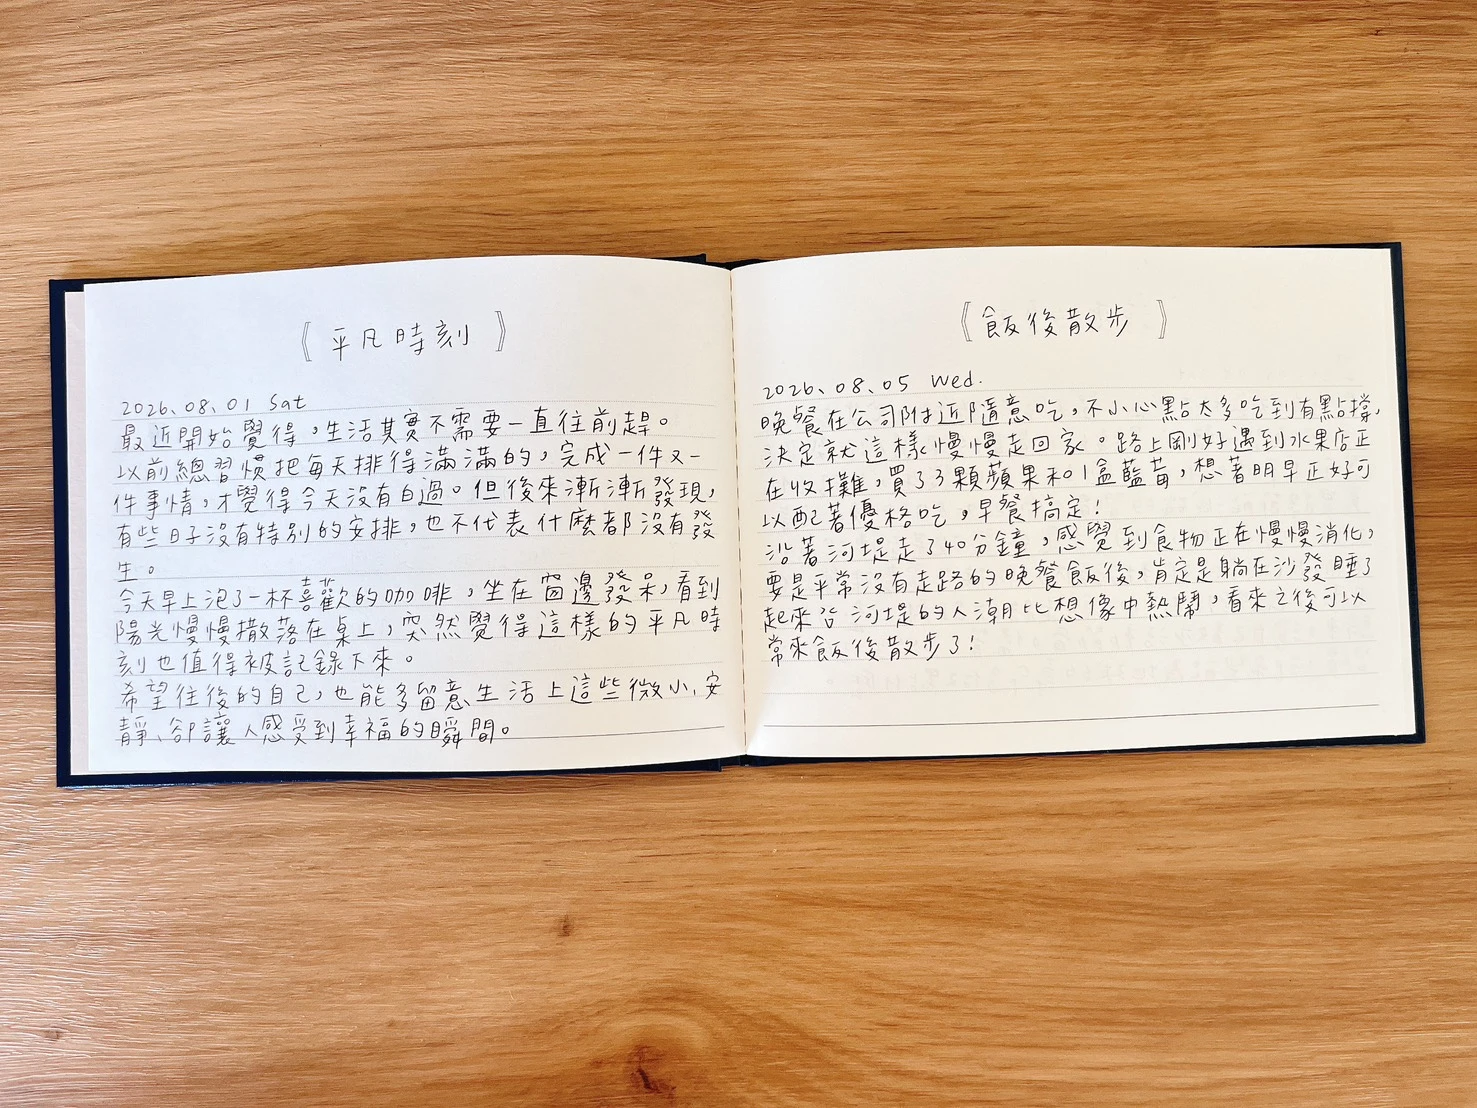 《平凡時刻》
2026、08、01 Sat
最近開始覺得，生活其實不需要一直往前趕。
以前總習慣把每天排得滿滿的，完成一件又一
件事情，才覺得今天沒有白過。但後來漸漸發現，
有些日子沒有特別的安排，也不代表什麼都沒有發
生。
今天早上泡了一杯喜歡的咖啡，坐在窗邊發呆，看到
陽光慢慢撒落在桌上，突然覺得這樣的平凡時
刻也值得被記錄下來。
希望往後的自己，也能多留意生活上這些微小、安
靜、卻讓人感受到幸福的瞬間。
《飯後散步》
2026、08、05 Wed.
晚餐在公司附近隨意吃，不小心點太多吃到有點撐，
決定就這樣慢慢走回家。路上剛好遇到水果店正
在收攤，買了3顆蘋果和1盒藍莓，想著明早正好可
以配著優格吃，早餐搞定！
沿著河堤走了40分鐘，感覺到食物正在慢慢消化，
要是平常沒有走路的晚餐飯後，肯定是躺在沙發睡了
起來 河堤的人潮比想像中熱鬧，看來之後可以
常來飯後散步了！